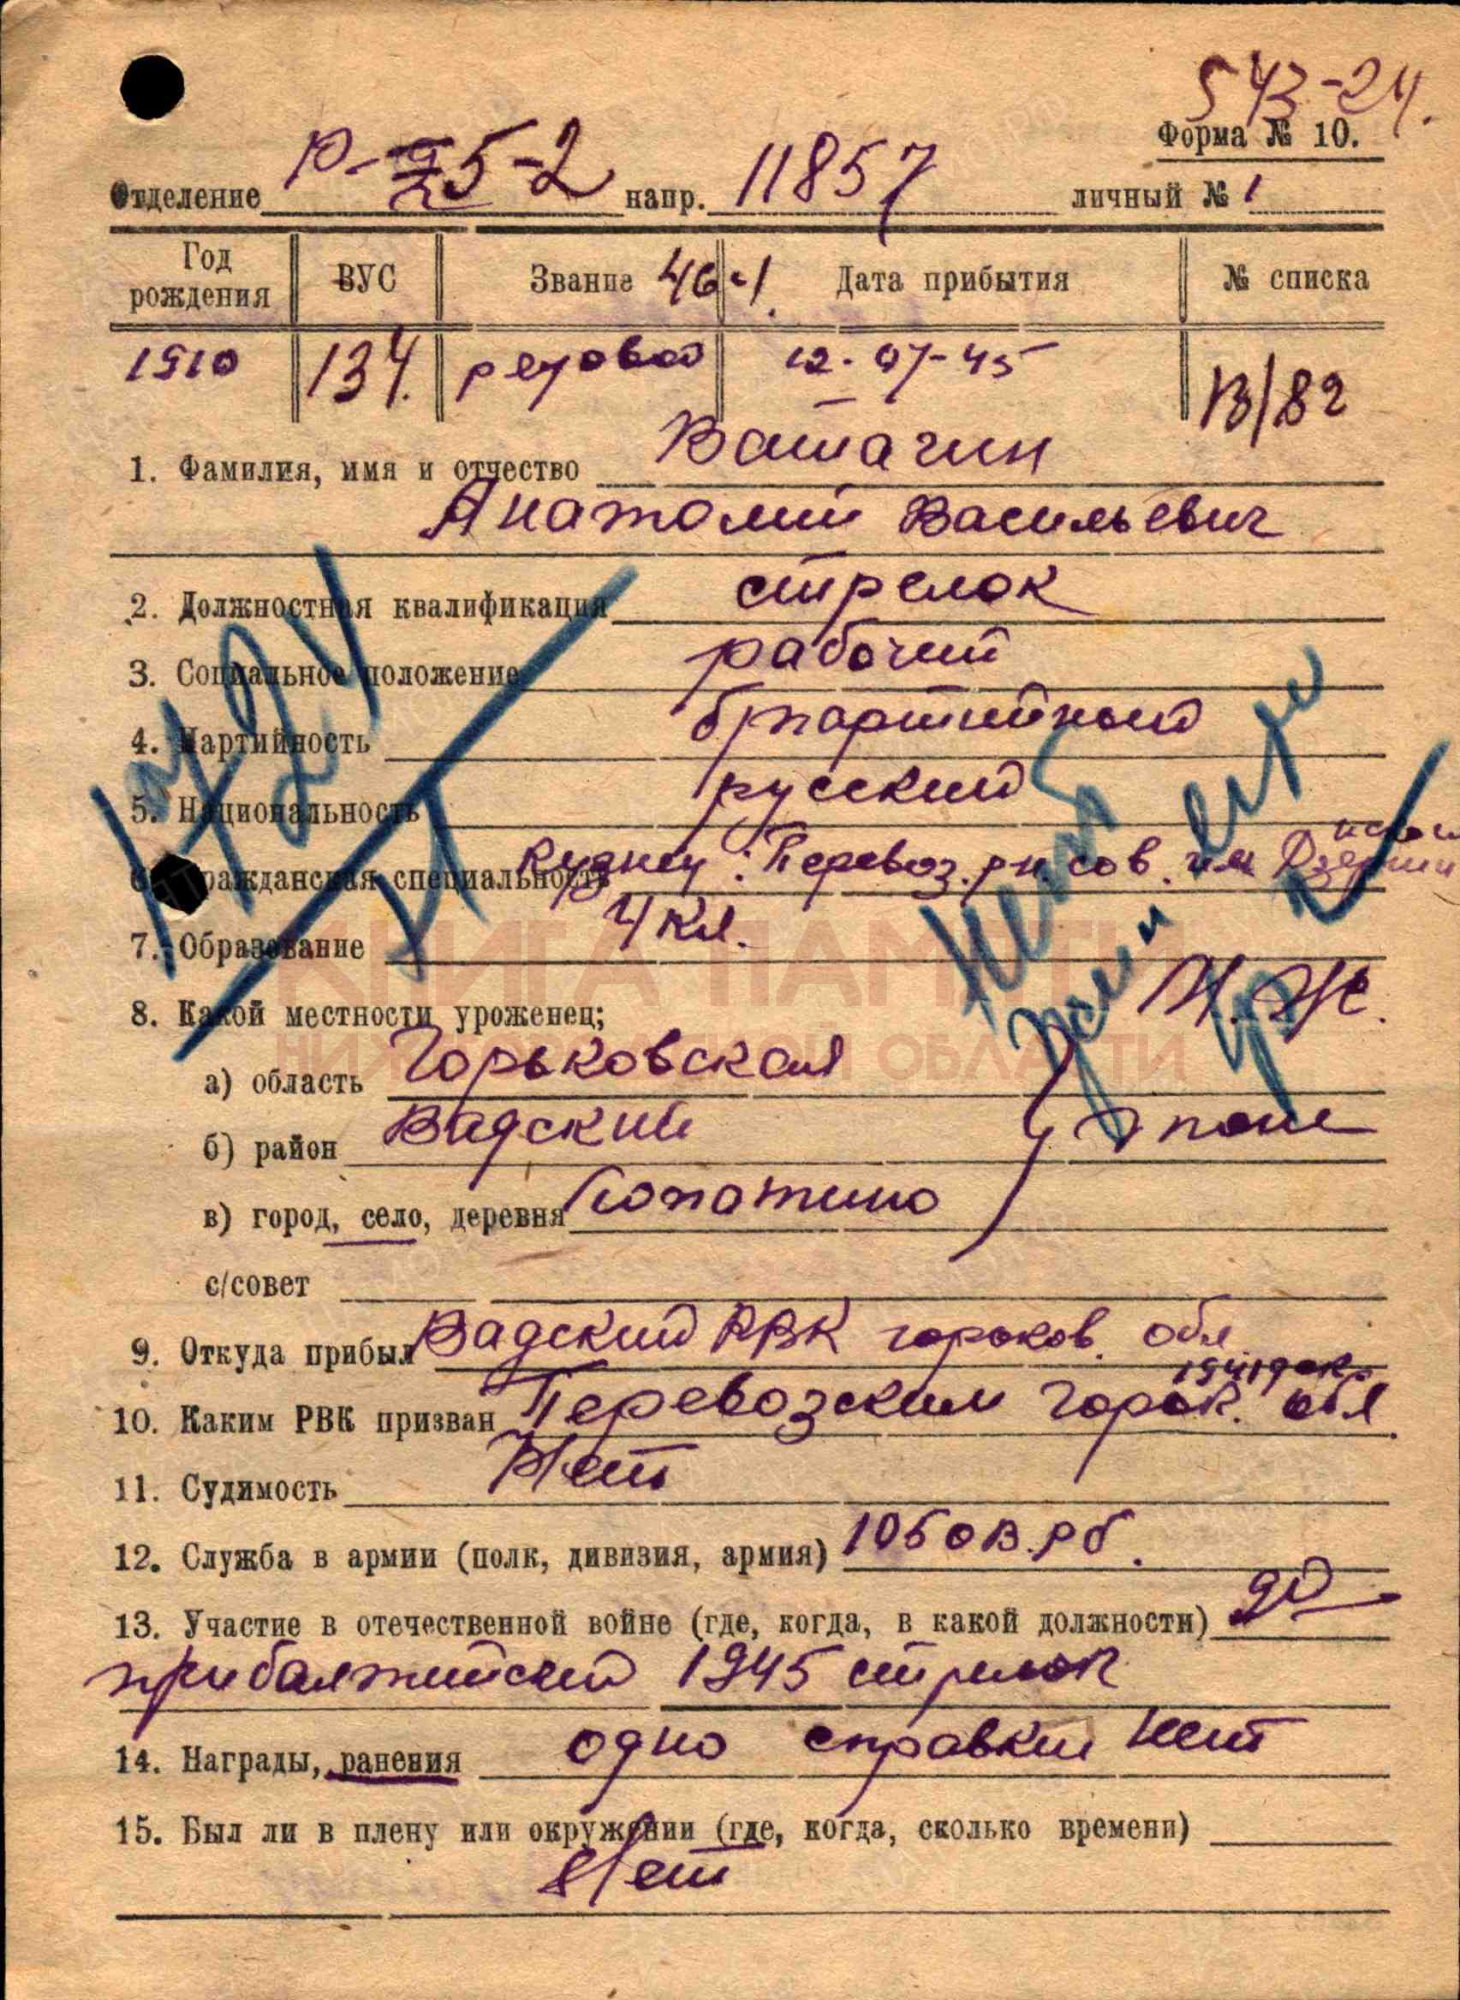 543-24.
Форма № 10.
Отделение Р-25-2 напр. 11857 личный № 1
Год рождения ВУС Звание 46-1 Дата прибытия № списка
1910 134. рядовой 12-07-45 13/82
1. Фамилия, имя и отчество Ватагин
Анатолий Васильевич
2. Должностная квалификация стрелок
3. Социальное положение рабочий
4. Партийность б/партийный
5. Национальность русский
6. Гражданская специальность Кузнец: Перевоз. рн. сов. им Дзержин
7. Образование 4 кл.
КНИГА ПАМЯТИ
НИЖЕГОРОДСКОЙ ОБЛАСТИ
8. Какой местности уроженец;
а) область Горьковская
б) район Вадский
в) город, село, деревня Лопатино
с/совет
9. Откуда прибыл Вадский РВК горьков. обл
10. Каким РВК призван Перевозским горьк. обл.
11. Судимость Нет
12. Служба в армии (полк, дивизия, армия)
13. Участие в отечественной войне (где, когда, в какой должности) да
прибалтийский 1945 стрелок
14. Награды, ранения одно справки нет
15. Был ли в плену или окружении (где, когда, сколько времени)
Нет